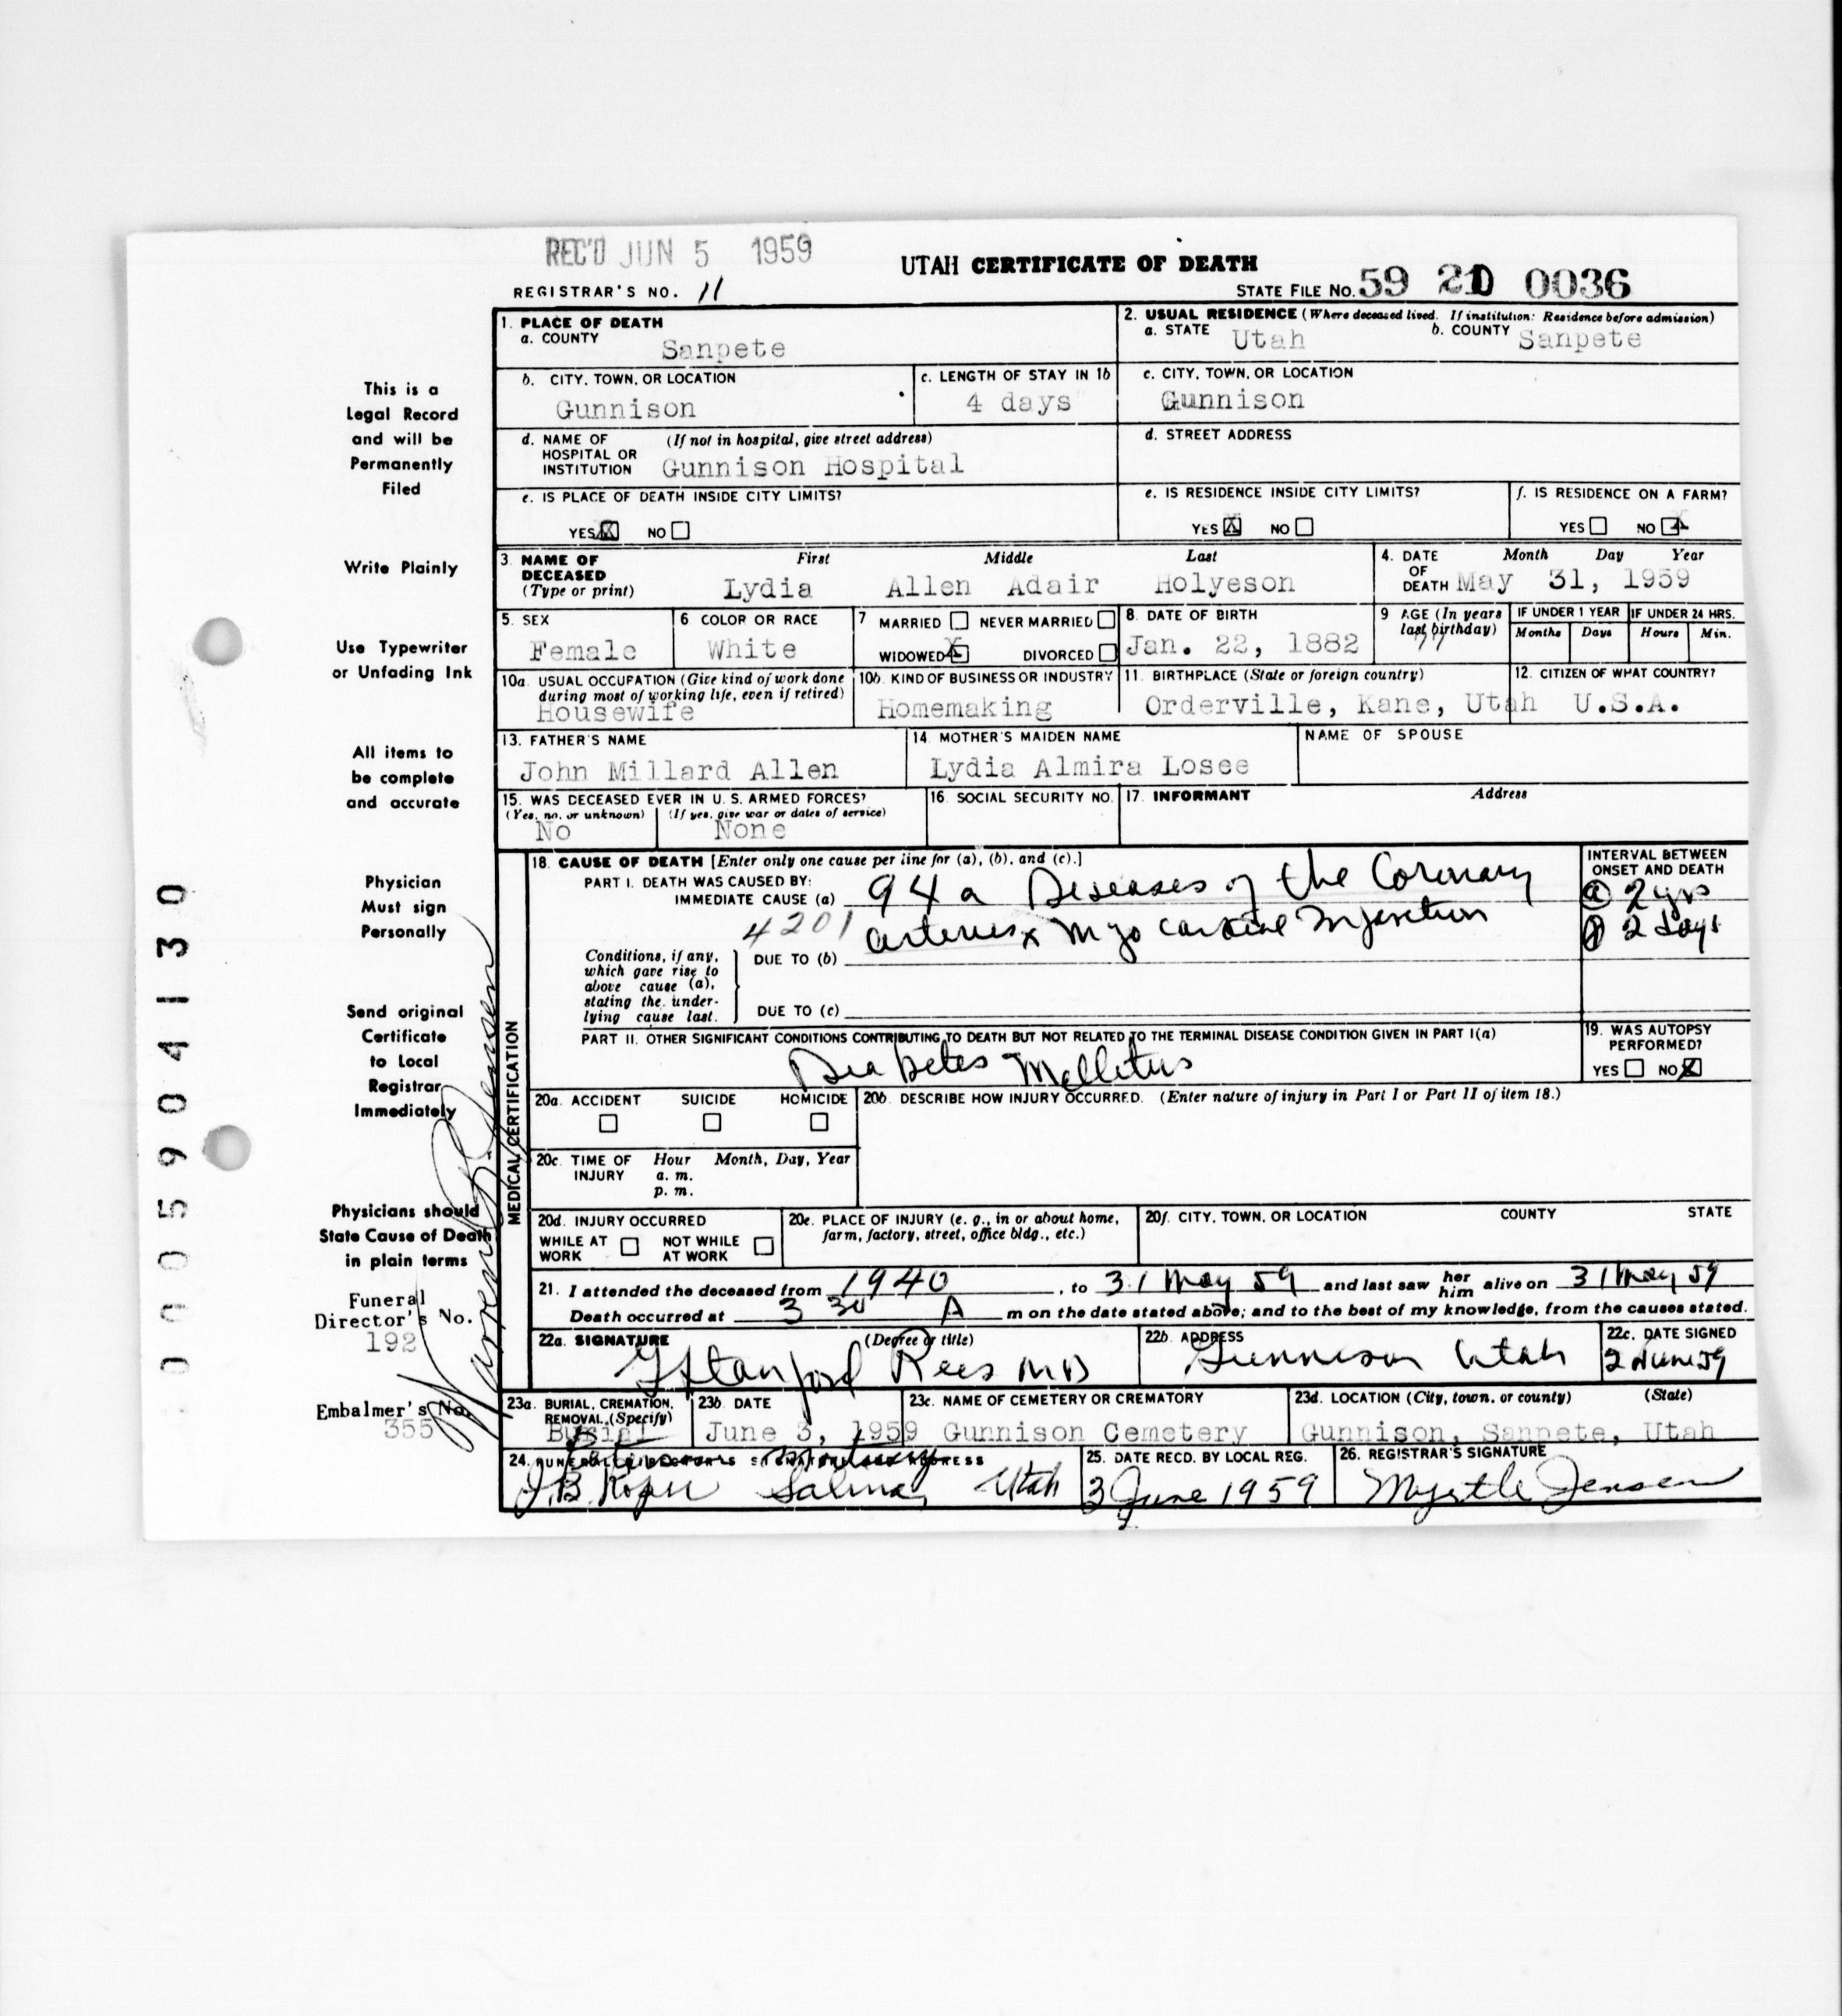 REC'D JUN 5 1959
UTAH CERTIFICATE OF DEATH
REGISTRAR'S NO. 11
STATE FILE No. 59 21 0036
1. PLACE OF DEATH
a. COUNTY
Sanpete
2. USUAL RESIDENCE (Where deceased lived. If institution: Residence before admission)
a. STATE Utah b. COUNTY Sanpete
b. CITY, TOWN, OR LOCATION
Gunnison
c. LENGTH OF STAY IN 1b
4 days
c. CITY, TOWN, OR LOCATION
Gunnison
d. NAME OF HOSPITAL OR INSTITUTION (If not in hospital, give street address)
Gunnison Hospital
d. STREET ADDRESS
e. IS PLACE OF DEATH INSIDE CITY LIMITS?
YES X NO
e. IS RESIDENCE INSIDE CITY LIMITS?
YES X NO
f. IS RESIDENCE ON A FARM?
YES NO X
3. NAME OF DECEASED (Type or print)
First Middle Last
Lydia Allen Adair Holyeson
4. DATE OF DEATH
Month Day Year
May 31, 1959
5. SEX
Female
6 COLOR OR RACE
White
7 MARRIED NEVER MARRIED
WIDOWED X DIVORCED
8. DATE OF BIRTH
Jan. 22, 1882
9 AGE (In years last birthday)
77
IF UNDER 1 YEAR
Months Days
IF UNDER 24 HRS.
Hours Min.
10a. USUAL OCCUPATION (Give kind of work done during most of working life, even if retired)
Housewife
10b. KIND OF BUSINESS OR INDUSTRY
Homemaking
11. BIRTHPLACE (State or foreign country)
Orderville, Kane, Utah
12. CITIZEN OF WHAT COUNTRY?
U.S.A.
13. FATHER'S NAME
John Millard Allen
14. MOTHER'S MAIDEN NAME
Lydia Almira Losee
NAME OF SPOUSE
15. WAS DECEASED EVER IN U. S. ARMED FORCES?
(Yes, no, or unknown) (If yes, give war or dates of service)
No None
16. SOCIAL SECURITY NO.
17. INFORMANT Address
MEDICAL CERTIFICATION
18. CAUSE OF DEATH [Enter only one cause per line for (a), (b), and (c).]
PART I. DEATH WAS CAUSED BY:
IMMEDIATE CAUSE (a) 94a Diseases of the Coronary
4201 arteries x Myocardial Infarction
Conditions, if any, which gave rise to above cause (a), stating the under-lying cause last.
DUE TO (b)
DUE TO (c)
INTERVAL BETWEEN ONSET AND DEATH
2 yrs
2 days
PART II. OTHER SIGNIFICANT CONDITIONS CONTRIBUTING TO DEATH BUT NOT RELATED TO THE TERMINAL DISEASE CONDITION GIVEN IN PART I(a)
Diabetes Mellitus
19. WAS AUTOPSY PERFORMED?
YES NO X
20a. ACCIDENT SUICIDE HOMICIDE
20b. DESCRIBE HOW INJURY OCCURRED. (Enter nature of injury in Part I or Part II of item 18.)
20c. TIME OF INJURY Hour Month, Day, Year
a. m.
p. m.
20d. INJURY OCCURRED
WHILE AT WORK NOT WHILE AT WORK
20e. PLACE OF INJURY (e. g., in or about home, farm, factory, street, office bldg., etc.)
20f. CITY, TOWN, OR LOCATION COUNTY STATE
21. I attended the deceased from 1940, to 31 May 59 and last saw her him alive on 31 May 59
Death occurred at 3 30 A m on the date stated above; and to the best of my knowledge, from the causes stated.
22a. SIGNATURE (Degree or title)
G Stanford Rees MD
22b. ADDRESS
Gunnison Utah
22c. DATE SIGNED
2 June 59
23a. BURIAL, CREMATION, REMOVAL (Specify)
Burial
23b. DATE
June 3, 1959
23c. NAME OF CEMETERY OR CREMATORY
Gunnison Cemetery
23d. LOCATION (City, town, or county) (State)
Gunnison, Sanpete, Utah
24. FUNERAL DIRECTOR'S SIGNATURE ADDRESS
Mortuary
J.B. Roper Salina, Utah
25. DATE RECD. BY LOCAL REG.
3 June 1959
26. REGISTRAR'S SIGNATURE
Myrtle Jensen
This is a
Legal Record
and will be
Permanently
Filed
Write Plainly
Use Typewriter
or Unfading Ink
All items to
be complete
and accurate
Physician
Must sign
Personally
Send original
Certificate
to Local
Registrar
Immediately
Physicians should
State Cause of Death
in plain terms
Funeral
Director's No.
192
Embalmer's No.
355
005904130